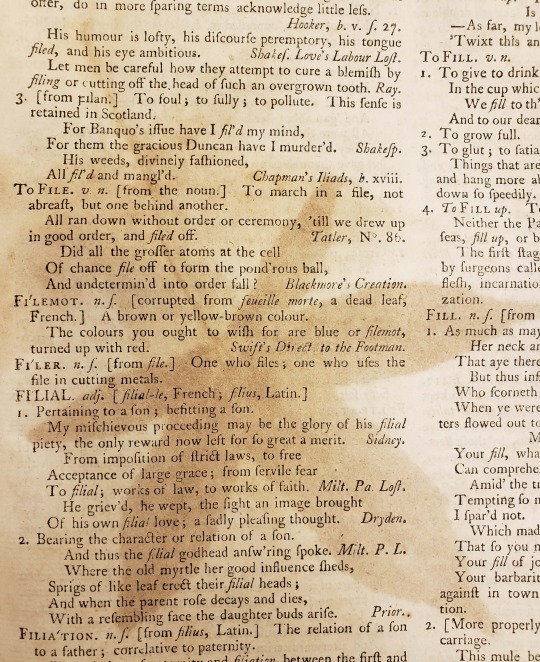 offer, do in more sparing terms acknowledge little leſs.
Hooker, b. v. ſ. 27.
His humour is lofty, his diſcourſe peremptory, his tongue
filed, and his eye ambitious. Shakeſ. Love's Labour Loſt.
Let men be careful how they attempt to cure a blemiſh by
filing or cutting off the head of ſuch an overgrown tooth. Ray.
3. [from ꝼılan.] To foul; to ſully; to pollute. This ſenſe is
retained in Scotland.
For Banquo's iſſue have I fil'd my mind,
For them the gracious Duncan have I murder'd. Shakeſp.
His weeds, divinely faſhioned,
All fil'd and mangl'd. Chapman's Iliads, b. xviii.
To FILE. v n. [from the noun.] To march in a file, not
abreaſt, but one behind another.
All ran down without order or ceremony, 'till we drew up
in good order, and filed off. Tatler, N°. 86.
Did all the groſſer atoms at the call
Of chance file off to form the pond'rous ball,
And undetermin'd into order fall? Blackmore's Creation.
FI'LEMOT. n. ſ. [corrupted from feueille morte, a dead leaf,
French.] A brown or yellow-brown colour.
The colours you ought to wiſh for are blue or filemot,
turned up with red. Swift's Direct. to the Footman.
FI'LER. n. ſ. [from file.] One who files; one who uſes the
file in cutting metals.
FI'LIAL. adj. [filial-le, French; filius, Latin.]
1. Pertaining to a ſon; befitting a ſon.
My miſchievous proceeding may be the glory of his filial
piety, the only reward now left for ſo great a merit. Sidney.
From impoſition of ſtrict laws, to free
Acceptance of large grace; from ſervile fear
To filial; works of law, to works of faith. Milt. Pa. Loſt.
He griev'd, he wept, the ſight an image brought
Of his own filial love; a ſadly pleaſing thought. Dryden.
2. Bearing the character or relation of a ſon.
And thus the filial godhead anſw'ring ſpoke. Milt. P. L.
Where the old myrtle her good influence ſheds,
Sprigs of like leaf erect their filial heads;
And when the parent roſe decays and dies,
With a reſembling face the daughter buds ariſe. Prior.
FILIA'TION. n. ſ. [from filius, Latin.] The relation of a ſon
to a father; correlative to paternity.
and filiation, between the firſt and
Is
—As far, my l
'Twixt this an
To FILL. v. n.
1. To give to drink
In the cup whic
We fill to th'
And to our dear
2. To grow full.
3. To glut; to ſatia
Things that are
and hang more ab
down ſo ſpeedily.
4. To FILL up. T
Neither the Pa
ſeas, fill up, or b
The firſt ſtag
by ſurgeons calle
fleſh, incarnatio
zation.
FILL. n. ſ. [from
1. As much as may
Her neck an
That aye there
But thus inf
Who ſcorneth
When ye were
ters flowed out to
M
Your fill, wha
Can comprehe
Amid' the t
Tempting ſo n
I ſpar'd not.
Which mad
That ſo you m
Your fill of jo
Your barbarit
againſt in town
tion.
2. [More properly
carriage.
This mule be